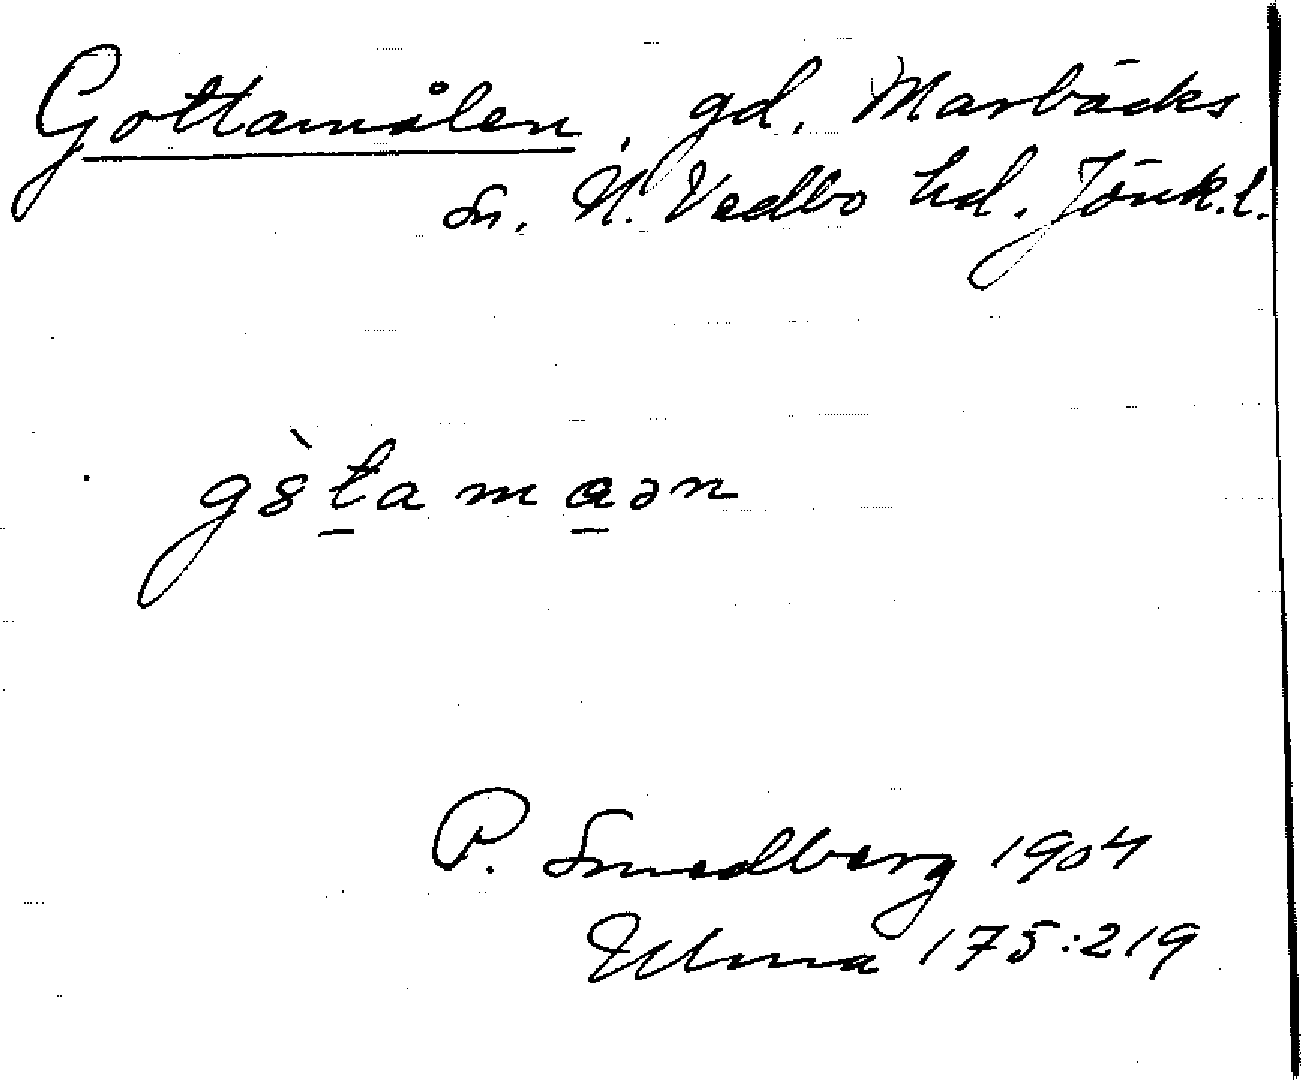 Gottamålen, gd, Marbäcks
sn. N. Vedbo hd. Jönk.l.
gòt̠ama̠ən
P. Smedberg 1904
Ulma 175:219